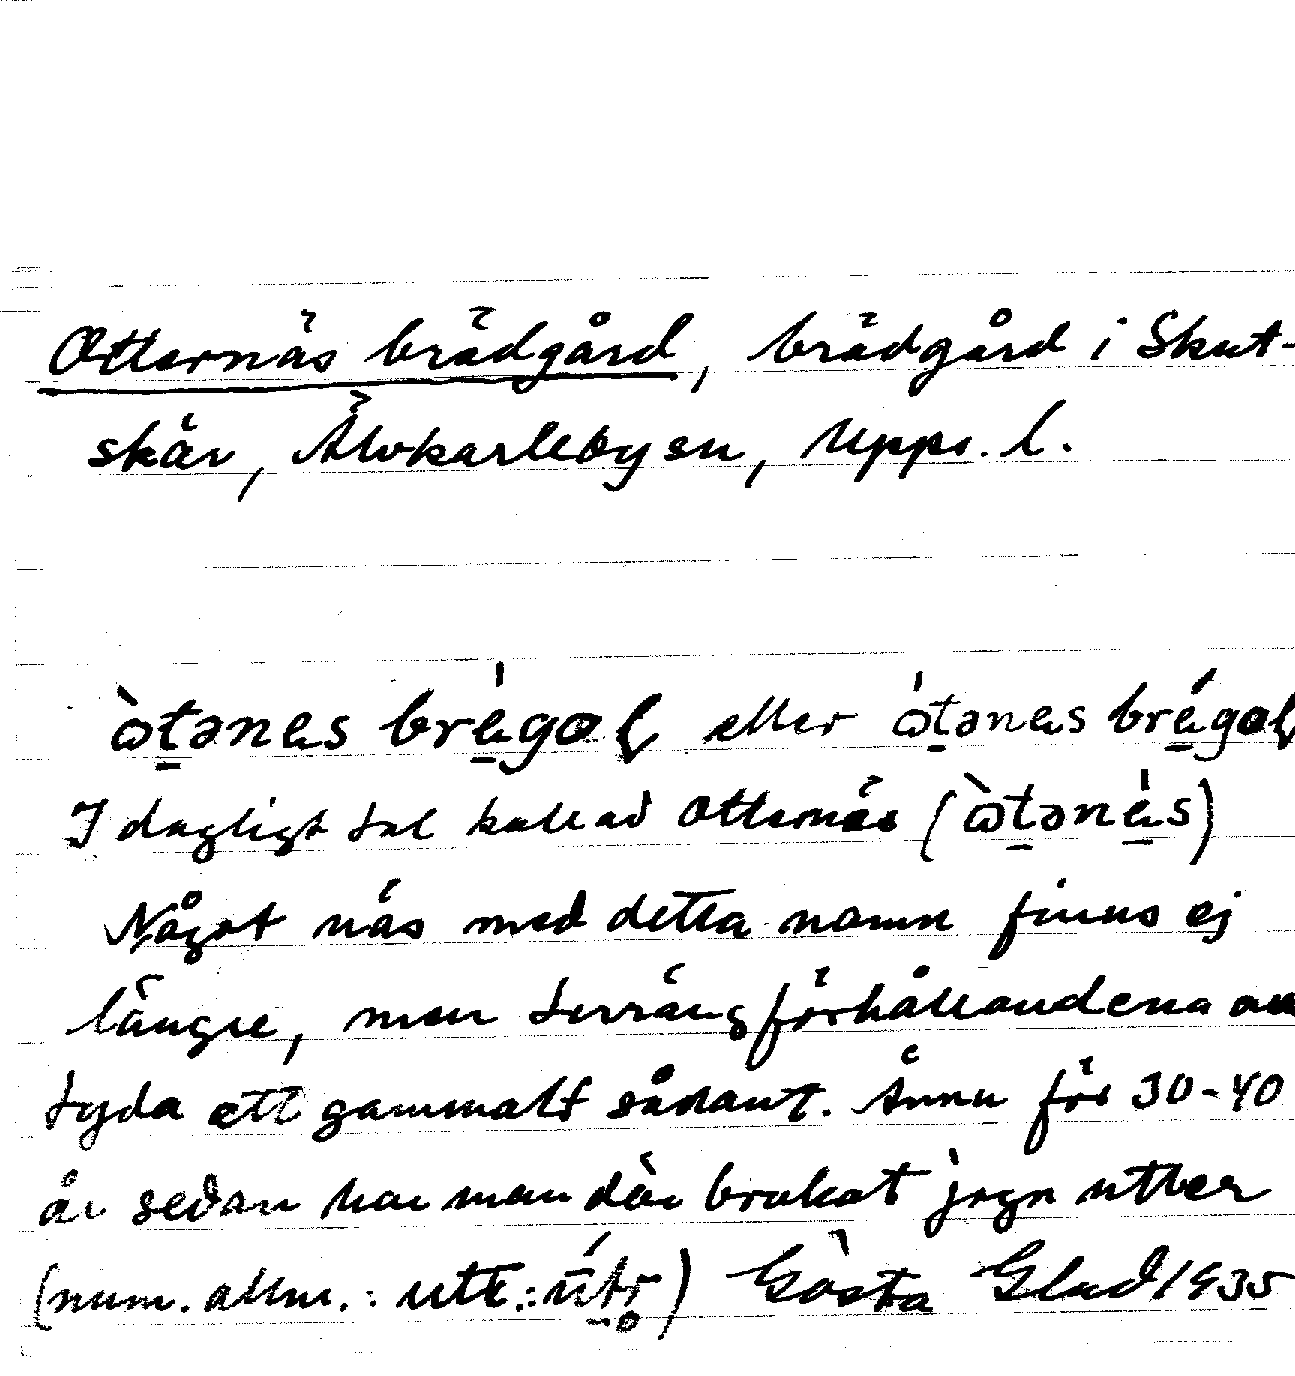 Otternäs brädgård, brädgård i Skut-
skär, Älvkarleby sn, Upps. l.
òt̠ənas brá̠gaḷ eller ót̠ənas brá̠gaḷ
I dagligt tal kallad Otternäs (òt̠əná̠s)
Något näs med detta namn finns ej
längre, men terrängförhållandena an
tyda ett gammalt sådant. Ännu för 30-40
år sedan har man där brukat jaga utter
(num. allm.: utt.: út̠r̥) Gösta Glad 1935